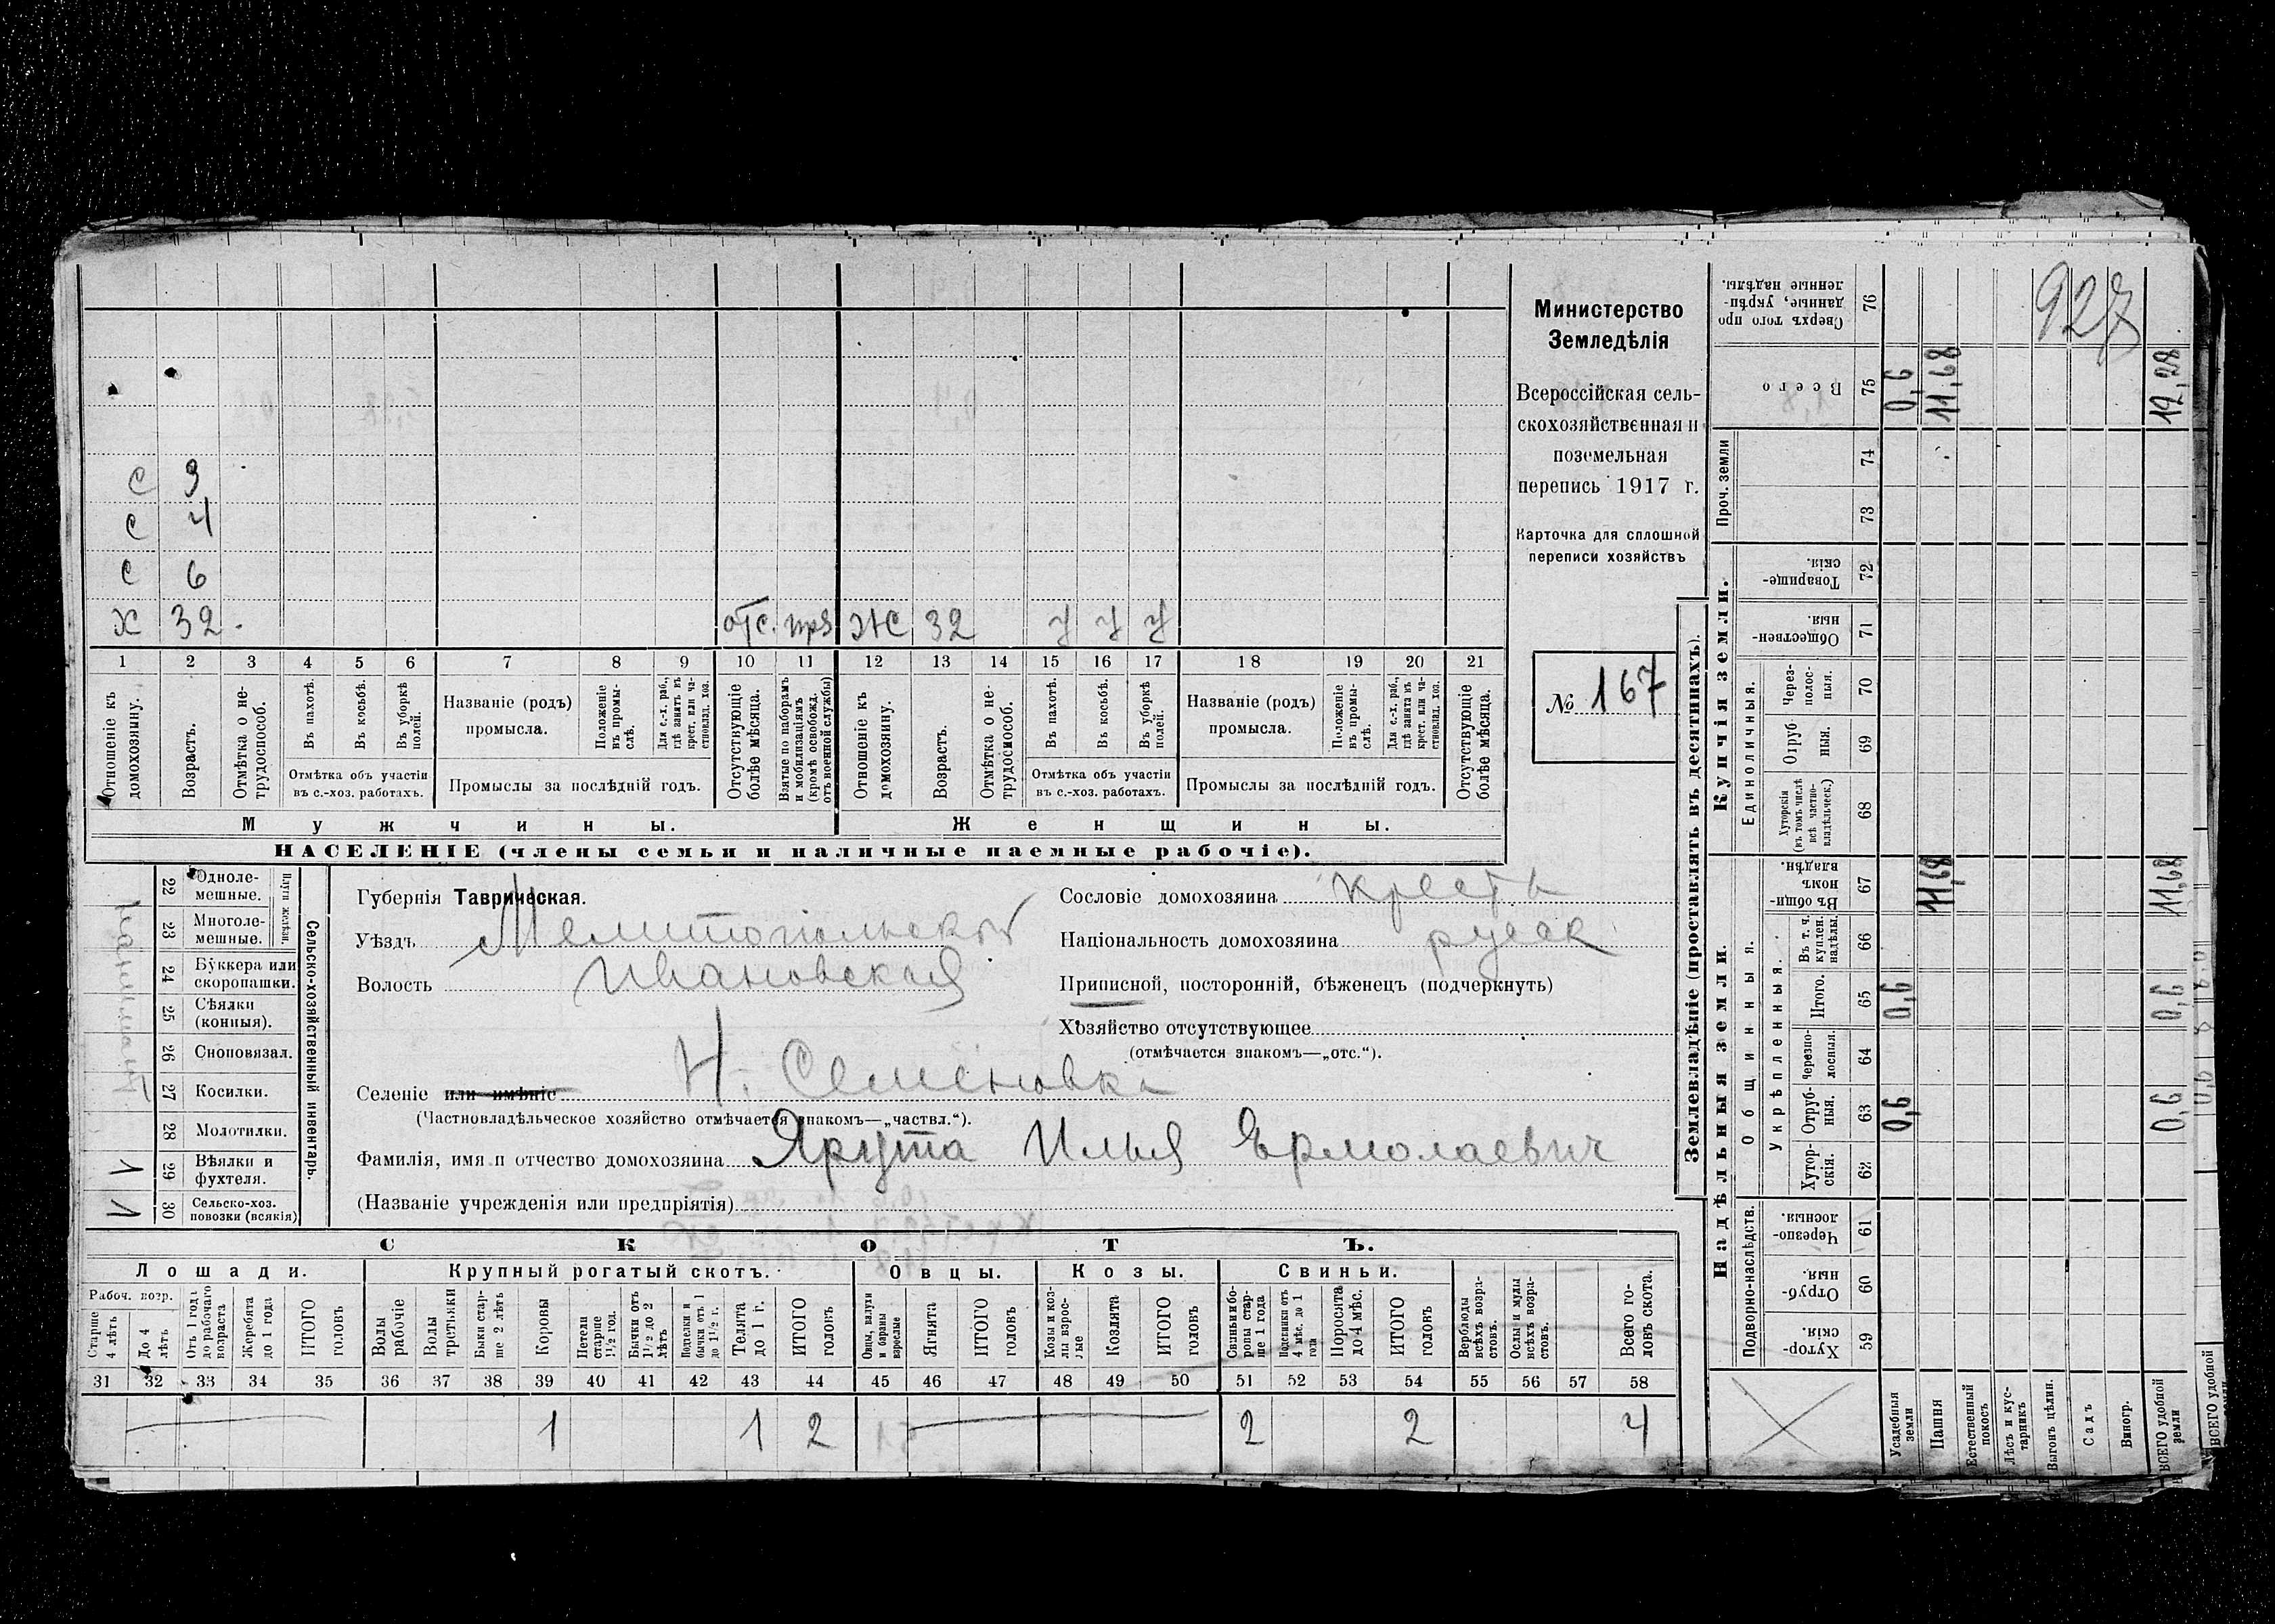 С 3
С 4
С 6
Х 32. отс. прз Ж 32 у у у
1 2 3 4 5 6 7 8 9 10 11 12 13 14 15 16 17 18 19 20 21
Отношеніе къ домохозяину.
Возрастъ.
Отмѣтка о не-трудоспособ.
Въ пахотѣ.
Въ косьбѣ.
Въ уборкѣ полей.
Отмѣтка объ участіи въ с.-хоз. работахъ.
Названіе (родъ) промысла.
Положеніе въ промы-слѣ.
Для с.-х. раб., гдѣ занятъ въ крест. или ча-стновлад. хоз.
Промыслы за послѣдній годъ.
Отсутствующіе болѣе мѣсяца.
Взятые по наборамъ и мобилизаціямъ (кромѣ освобожд. отъ военной службы)
Отношеніе къ домохозяину.
Возрастъ.
Отмѣтка о не-трудоспособ.
Въ пахотѣ.
Въ косьбѣ.
Въ уборкѣ полей.
Отмѣтка объ участіи въ с.-хоз. работахъ.
Названіе (родъ) промысла.
Положеніе въ промы-слѣ.
Для с.-х. раб., гдѣ занята въ крест. или ча-стновлад. хоз.
Промыслы за послѣдній годъ.
Отсутствующіе болѣе мѣсяца.
Мужчины. Женщины.
НАСЕЛЕНІЕ (члены семьи и наличные наемные рабочіе).
Министерство
Земледѣлія
Всероссійская сель-
скохозяйственная и
поземельная
перепись 1917 г.
Карточка для сплошной
переписи хозяйствъ
№ 167
22 Одноле-мешные.
23 Многоле-мешные.
Плуги желѣзн.
24 Буккера или скоропашки.
25 Сѣялки (конныя).
26 Сноповязал.
27 Косилки.
28 Молотилки.
29 Вѣялки и фухтеля. 1
30 Сельско-хоз. повозки (всякія) 1
Сельско-хозяйственный инвентарь.
Губернія Таврическая.
Уѣздъ Мелитопольскій
Волость Ивановская
Селеніе или имѣніе Н. Семеновка
(Частновладѣльческое хозяйство отмѣчается знакомъ—„частвл.“).
Фамилія, имя и отчество домохозяина Ярута Илья Ярмолаевич
(Названіе учрежденія или предпріятія)
Сословіе домохозяина крестъ
Національность домохозяина русак
Приписной, посторонній, бѣженецъ (подчеркнуть)
Хозяйство отсутствующее
(отмѣчается знакомъ—„отс.“).
СКОТЪ.
Лошади. Крупный рогатый скотъ. Овцы. Козы. Свиньи.
Рабоч. возр.
Старше 4 лѣтъ
До 4 лѣтъ
Отъ 1 года до рабочаго возраста
Жеребята до 1 года
ИТОГО головъ
Волы рабочіе
Волы третьяки
Быки стар-ше 2 лѣтъ
Коровы
Нетели старше 1 1/2 год.
Бычки отъ 1 1/2 до 2 лѣтъ
Подтелки и бычки отъ 1 до 1 1/2 г.
Телята до 1 г.
ИТОГО головъ
Овцы, валухи и бараны взрослые
Ягнята
ИТОГО головъ
Козы и коз-лы взрос-лые
Козлята
ИТОГО головъ
Свиньи и бо-ровы стар-ше 1 года
Подсвинки отъ 4 мѣс. до 1 года
Поросята до 4 мѣс.
ИТОГО головъ
Верблюды всѣхъ возра-стовъ.
Ослы и мулы всѣхъ возра-стовъ.
Всего го-ловъ скота.
31 32 33 34 35 36 37 38 39 40 41 42 43 44 45 46 47 48 49 50 51 52 53 54 55 56 57 58
1 1 2 2 2 4
Землевладѣніе (проставлять въ десятинахъ).
Надѣльныя земли. Купчія земли.
Подворно-наслѣдств.
Общинныя.
Укрѣпленныя.
Единоличныя.
Проч. земли
Сверхъ того про-данные, укрѣп-ленные надѣлы. 76
Всего 75 0,6 11,68 12,28
74
73
Товарище-скія. 72
Обществен-ныя 71
Через-полос-ныя. 70
Отруб-ныя. 69
Хуторскія (въ томъ числѣ всѣ частно-владѣльческ.) 68
Въ общи-номъ владѣн. 67 11,68 11,68
Въ т. ч. куплен. надѣлы. 66
Итого. 65 0,6 0,6
Черезпо-лосныя. 64
Отруб-ныя. 63 0,6 0,6
Хутор-скія. 62
Черезпо-лосныя 61
Отруб-ныя. 60
Хутор-скія. 59
Усадебныя земли
Пашня
Естественный покосъ
Лѣсъ и кус-тарникъ
Выгонъ цѣлин.
Садъ
Виногр.
ВСЕГО удобной земли
ВСЕГО удобной
927